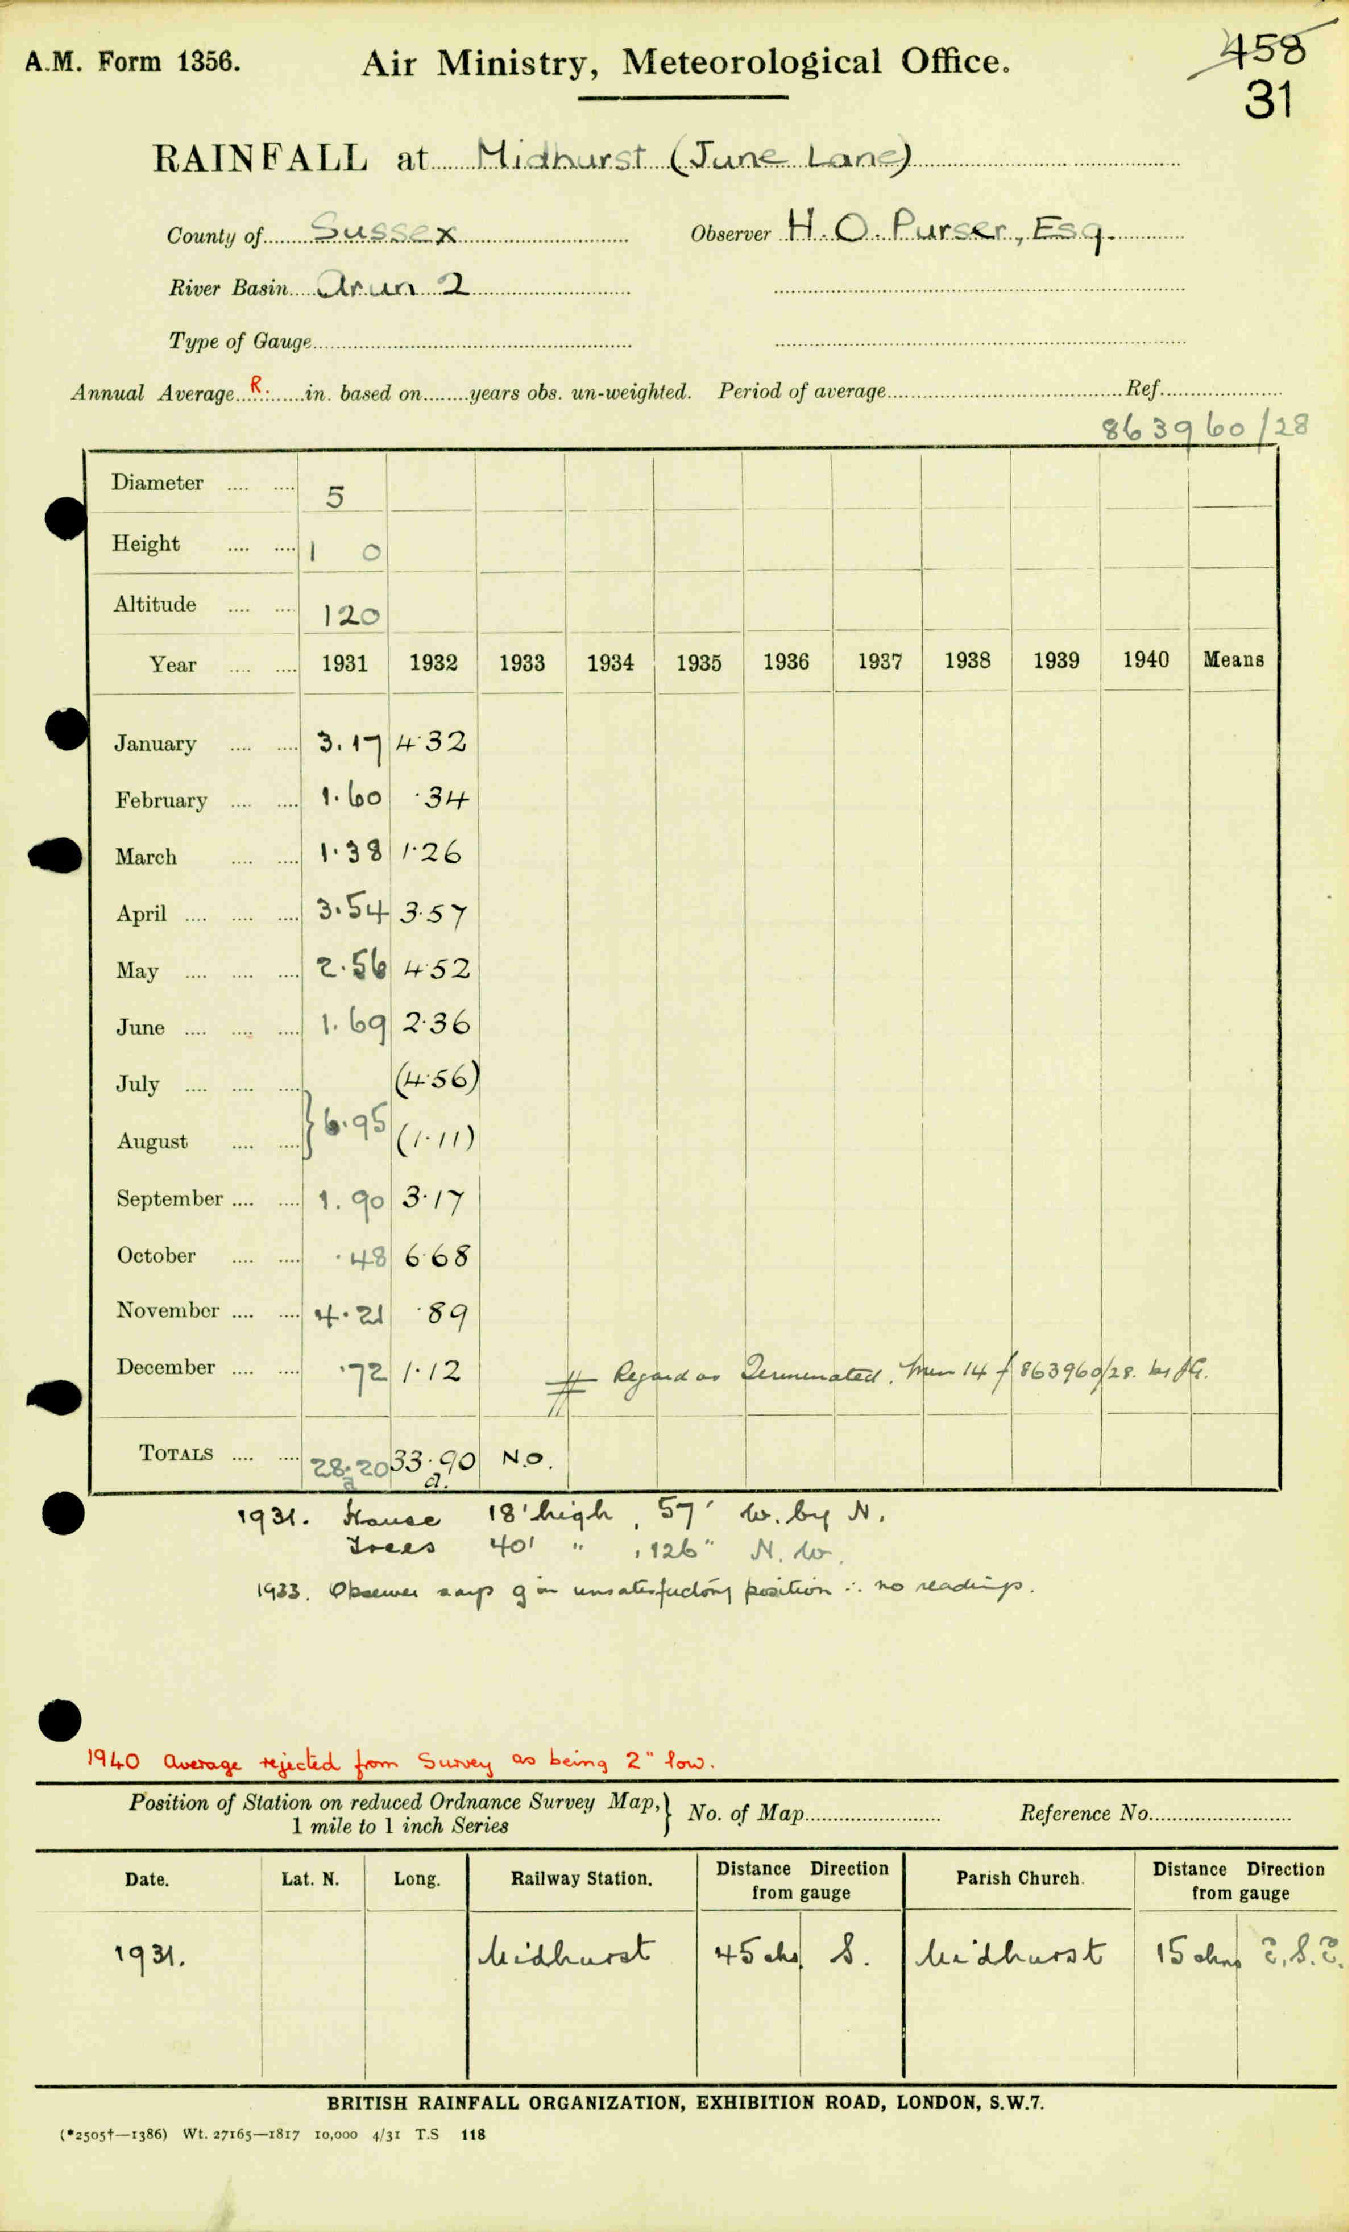 A.M. Form 1356. Air Ministry, Meteorological Office. 458
31
RAINFALL at Midhurst (June Lane)
County of Sussex Observer H. O. Purser, Esq.
River Basin Arun 2
Type of Gauge
Annual Average R. in. based on years obs. un-weighted. Period of average Ref.
863960/28
Diameter .... .... 5
Height .... .... 1 0
Altitude .... .... 120
Year .... .... 1931 1932 1933 1934 1935 1936 1937 1938 1939 1940 Means
January .... .... 3.17 4.32
February .... .... 1.60 .34
March .... .... 1.38 1.26
April .... .... .... 3.54 3.57
May .... .... .... 2.56 4.52
June .... .... .... 1.69 2.36
July .... .... .... (4.56)
August .... .... } 6.95 (1.11)
September .... .... 1.90 3.17
October .... .... .48 6.68
November .... .... 4.21 .89
December .... .... .72 1.12 # Regard as Terminated. Min 14 of 863960/28. by
TOTALS .... .... 28.20 33.90 N.O.
a a.
1931. House 18' high, 57' W. by N.
Trees 40' " , 126" N.W.
1933. Observer says g in unsatisfactory position ∴ no readings.
1940 Average rejected from Survey as being 2" low.
Position of Station on reduced Ordnance Survey Map, } No. of Map Reference No.
1 mile to 1 inch Series
Date. Lat. N. Long. Railway Station. Distance Direction from gauge Parish Church. Distance Direction from gauge
1931. Midhurst 45 chs S. Midhurst 15 chns E.S.E.
BRITISH RAINFALL ORGANIZATION, EXHIBITION ROAD, LONDON, S.W.7.
(*2505†—1386) Wt. 27165—1817 10,000 4/31 T.S 118